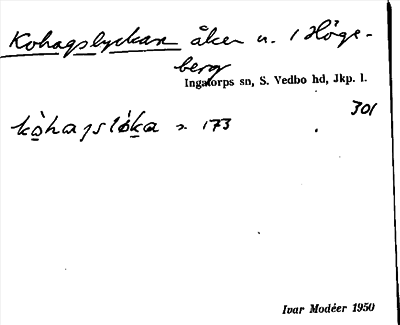 Kohagslyckan åker u. / Höge-
berg
Ingatorps sn, S. Vedbo hd, Jkp. l.
301
kohagslöka s. 173
Ivar Modéer 1950